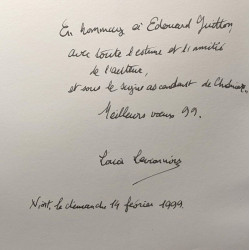 En hommage à Edouard Guitton,
avec toute l'estime et l'amitié
de l'auteur,
et sous le signe ascendant de
Meilleurs vœux 99.
Louis
Niort, le dimanche 14 février 1999.